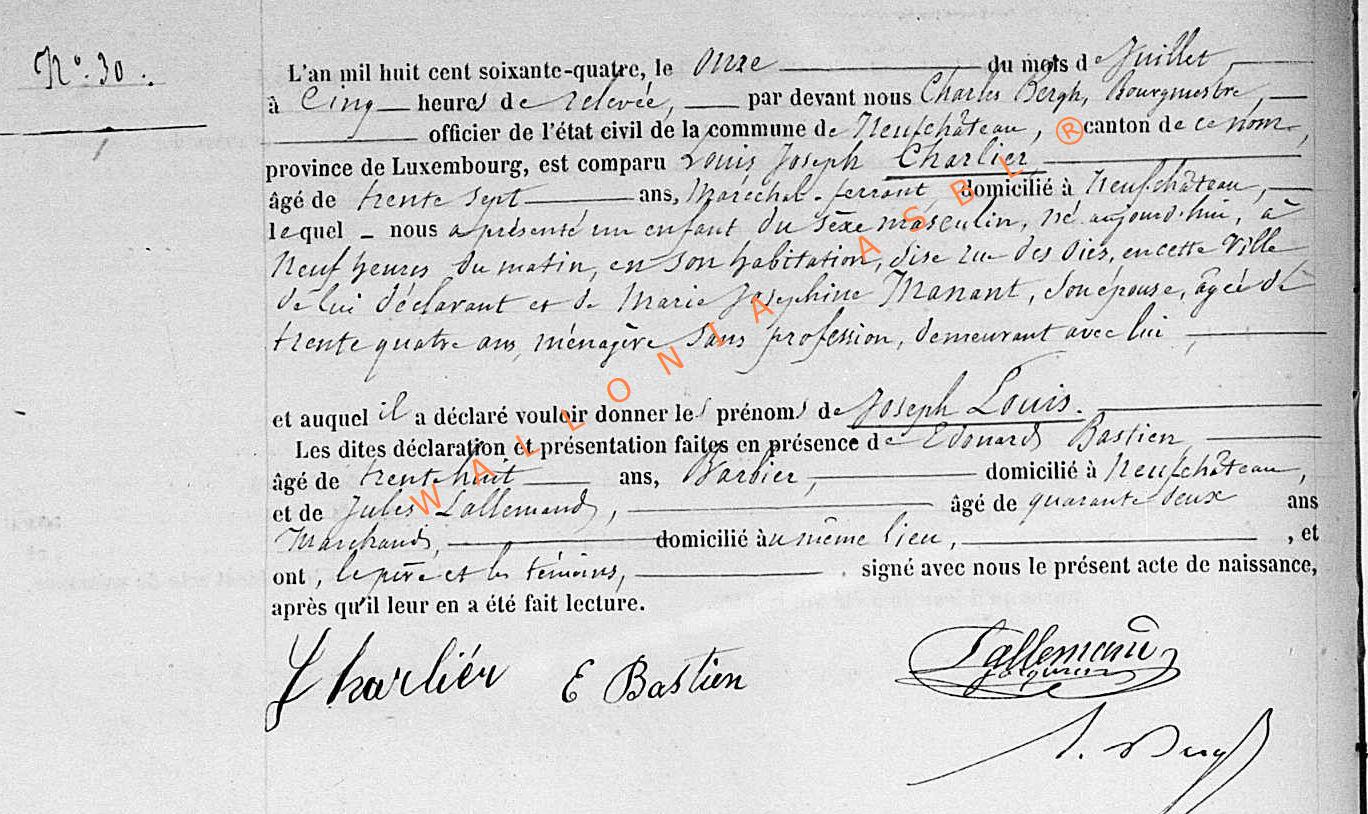 N° 30.
L'an mil huit cent soixante-quatre, le onze du mois de Juillet,
à Cinq heures de relevée, par devant nous Charles Bergh, Bourgmestre,
officier de l'état civil de la commune de Neufchâteau, canton de ce nom,
province de Luxembourg, est comparu Louis Joseph Charlier
âgé de trente sept ans, Maréchal-ferrant, domicilié à Neufchâteau,
lequel nous a présenté un enfant du sèxe masculin, né aujourd'hui, à
Neuf heures du matin, en son habitation, sise rue des , en cette Ville
de lui déclarant et de Marie Josephine Manant, son épouse, âgée de
trente quatre ans, ménagère sans profession, demeurant avec lui,
et auquel il a déclaré vouloir donner les prénoms de Joseph Louis.
Les dites déclaration et présentation faites en présence de Edouard Bastien
âgé de trente huit ans, Barbier, domicilié à Neufchâteau,
et de Jules Lallemand, âgé de quarante deux ans
Marchand, domicilié au même lieu, , et
ont, le père et les témoins, signé avec nous le présent acte de naissance,
après qu'il leur en a été fait lecture.
Charliér E Bastien Lallemand
WALLONIA ASBL ®